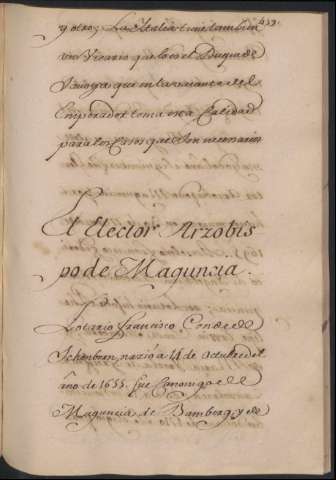 639.
y otro; La Italia tuvo tambien
un Vicario que lo es el Duque de
Savoya que en la vacante del
Emperador toma esta Calidad
para los Casos que son necesarios
El Elector Arzobis
po de Maguncia.
Lotario Francisco Conde de
Schenbron, nazio a 14 de octubre del
año de 1655. fue Canonigo de
Maguncia, de Bamberg, y de